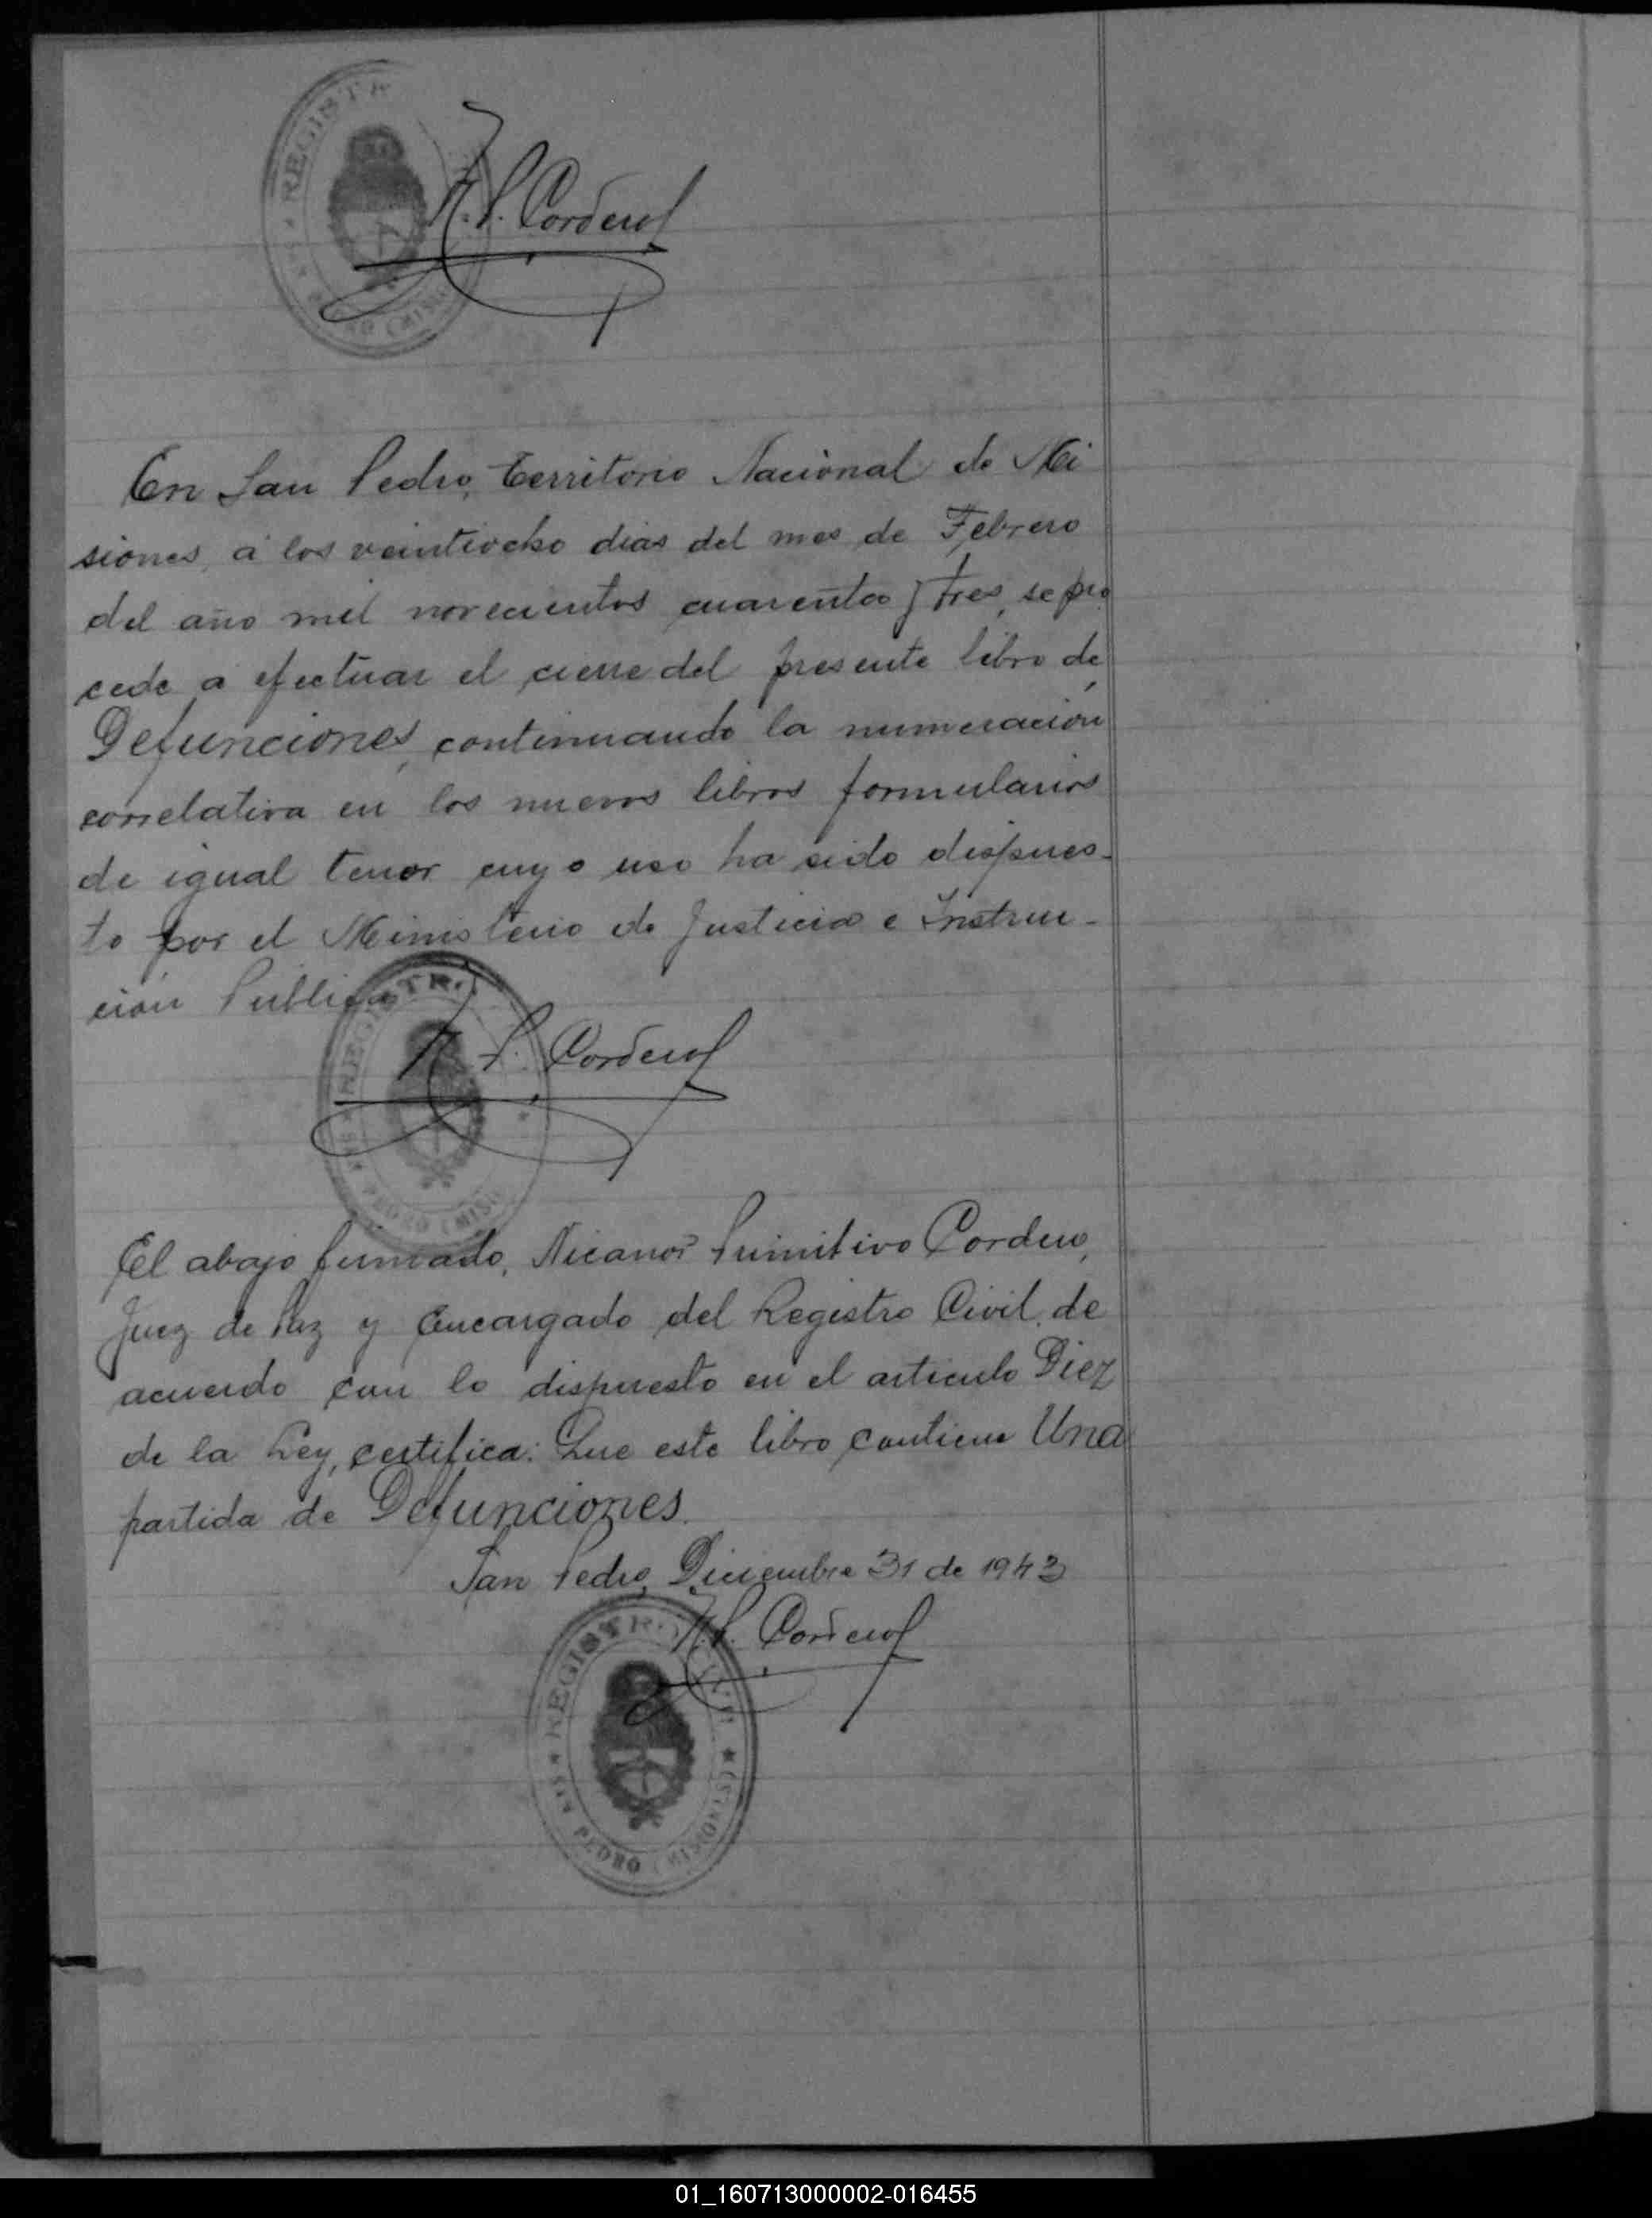 REGISTR
N. P. Cordero
PEDRO (MISI
En San Pedro, Territorio Nacional de Mi
siones, a los veintiocho dias del mes de Febrero
del año mil novecientos cuarenta y tres, se pro
cede a efectuar el cierre del presente libro de
Defunciones, continuando la numeración
correlativa en los nuevos libros formularios
de igual tenor cuyo uso ha sido dispues-
to por el Ministerio de Justicia e Instruc-
ción Publica
REGISTRO
N. P. Cordero
PEDRO (MISI
El abajo firmado, Nicanor Primitivo Cordero,
Juez de Paz y Encargado del Registro Civil, de
acuerdo con lo dispuesto en el articulo Diez
de la Ley, certifica: Que este libro contiene Una
partida de Defunciones.
San Pedro, Diciembre 31 de 1943
N. P. Cordero
REGISTRO CIVIL
PEDRO (MISIONES)
01_160713000002-016455